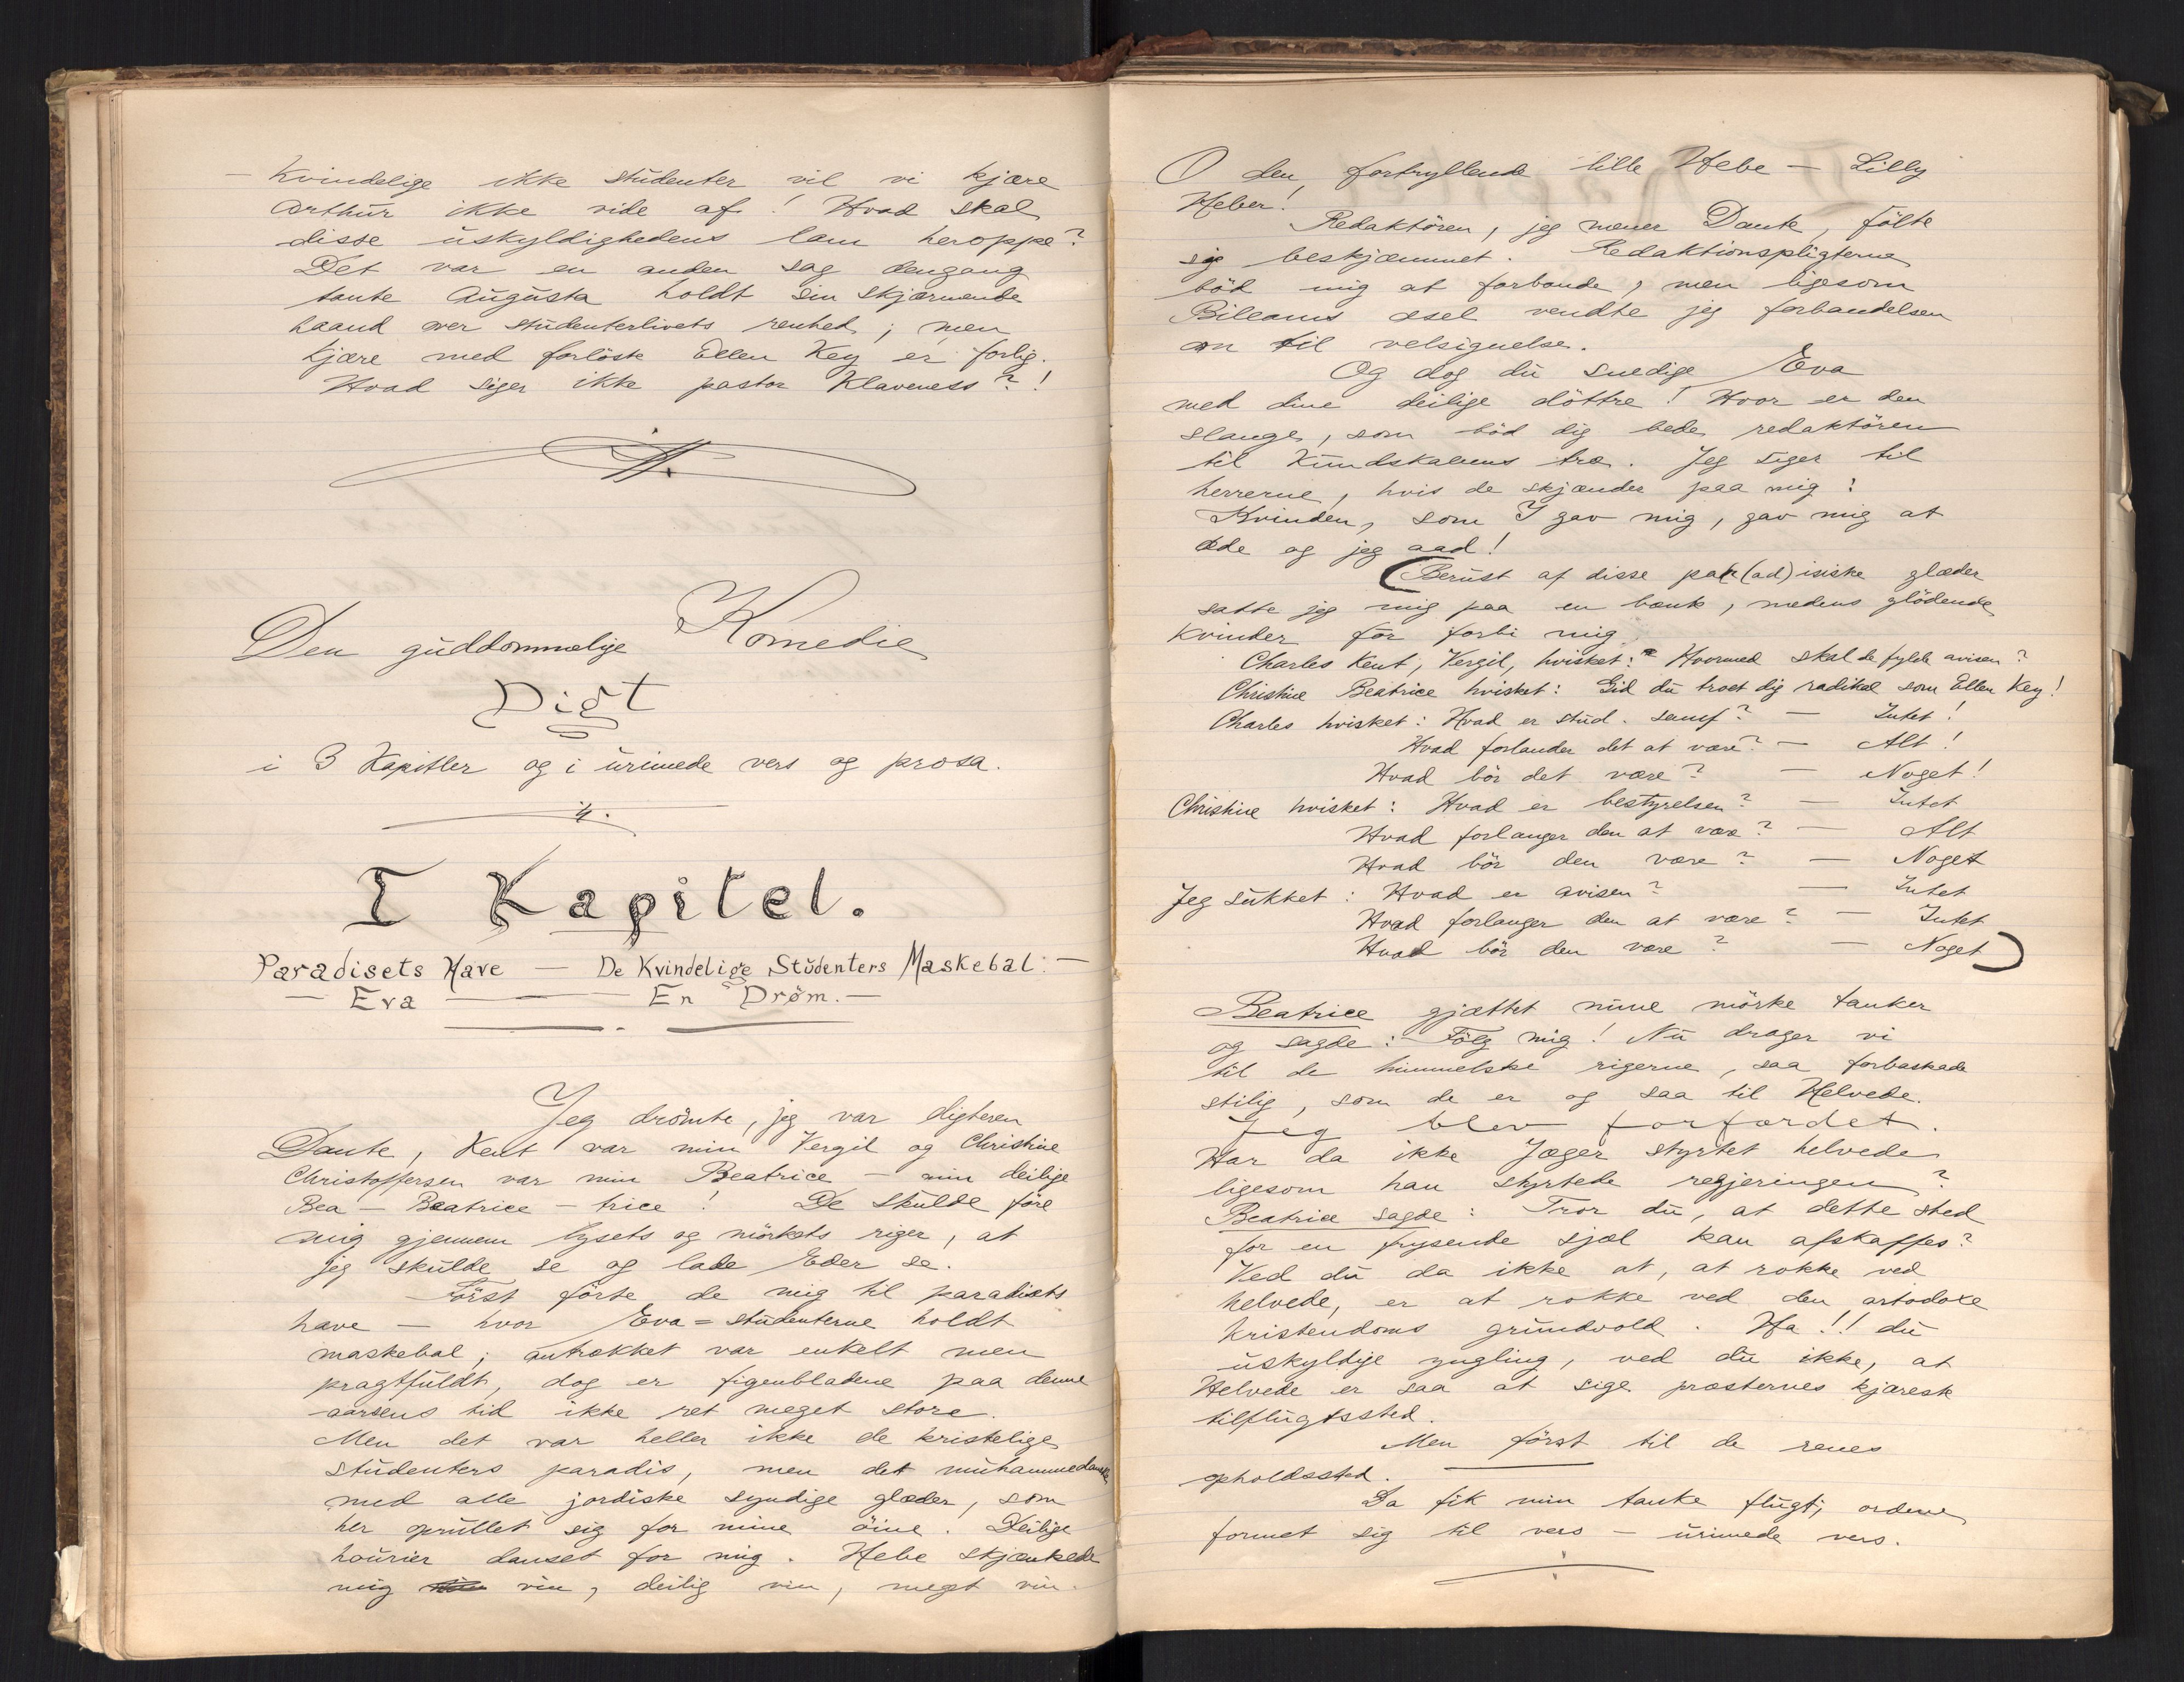 – Kvindelige ikke studenter vil vi kjære
Arthur ikke vide af! Hvad skal
disse uskyldighedens lam heroppe?
Det var en anden sag dengang
tante Augusta holdt sin skjærmende
haand over studenterlivets renhed; men
kjære med forlöste Ellen Key er farlig.
Hvad siger ikke pastor Klaveness?!
Den guddommelige Komedie
Digt
i 3 Kapitler og i urimede vers og prosa.
I Kapitel.
Paradisets Have — De Kvindelige Studenters Maskebal. —
— Eva — En Dröm. —
Jeg drömte, jeg var digteren
Dante, Kent var min Vergil og Christine
Christoffersen var min Beatrice – min deilige
Bea – Beatrice – trice! De skulde före
mig gjennem lysets og mörkets riger, at
jeg skulde se og lade Eder se.
Först förte de mig til paradisets
have — hvor Eva=studenterne holdt
maskebal; antrækket var enkelt men
pragtfuldt, dog er figenbladene paa denne
aarsens tid ikke ret meget store.
Men det var heller ikke de kristelige
studenters paradis, men det muhammedanske
med alle jordiske syndige glæder, som
her oprullet sig for mine öine. Deilige
hourier danset for mig. Hebe skjænkede
mig vin, deilig vin, meget vin.
O den fortryllende lille Hebe — Lilly
Heber!
Redaktören, jeg mener Dante, fölte
sig beskjæmmet. Redaktionspligterne
böd mig at forbande, men ligesom
Bileams æsel vendte jeg forbandelsen
om til velsignelse.
Og dog du snedige Eva
med dine deilige döttre! Hvor er den
slange, som böd dig bede redaktören
til Kundskabens træ. Jeg siger til
herrerne, hvis de skjænder paa mig:
Kvinden, som I gav mig, gav mig at
æde og jeg aad!
(Beruset af disse par(ad)isiske glæder
satte jeg mig paa en bænk, medens glödende
kvinder för forbi mig.
Charles Kent, Vergil, hvisket: Hvormed skal de fylde avisen?
Christine Beatrice hvisket: Gid du troet dig radikal som Ellen Key!
Charles hvisket: Hvad er stud. samf? — Intet!
Hvad forlander det at være? — Alt!
Hvad bör det være? — Noget!
Christine hvisket: Hvad er bestyrelsen? — Intet
Hvad forlanger den at være? — Alt
Hvad bör den være? — Noget
Jeg sukket: Hvad er avisen? — Intet
Hvad forlanger den at være? — Intet
Hvad bör den være? — Noget)
Beatrice gjættet mine mörke tanker
og sagde: Fölg mig! Nu drager vi
til de himmelske rigerne, saa forbaskade
stilig, som de er og saa til Helvede.
Jeg blev forfærdet.
Har da ikke Jæger styrtet helvede
ligesom han styrtede regjeringen?
Beatrice sagde: Tror du, at dette sted
for en frysende sjæl kan afskaffes?
Ved du da ikke at, at rokke ved
helvede, er at rokke ved den ortodoxe
kristendoms grundvold. Ha!! du
uskyldige yngling, ved du ikke, at
Helvede er saa at sige præsternes kjæreste
tilflugtssted.
Men först til de renes
opholdssted.
Da fik min tanke flugt; ordene
formet sig til vers – urimede vers.